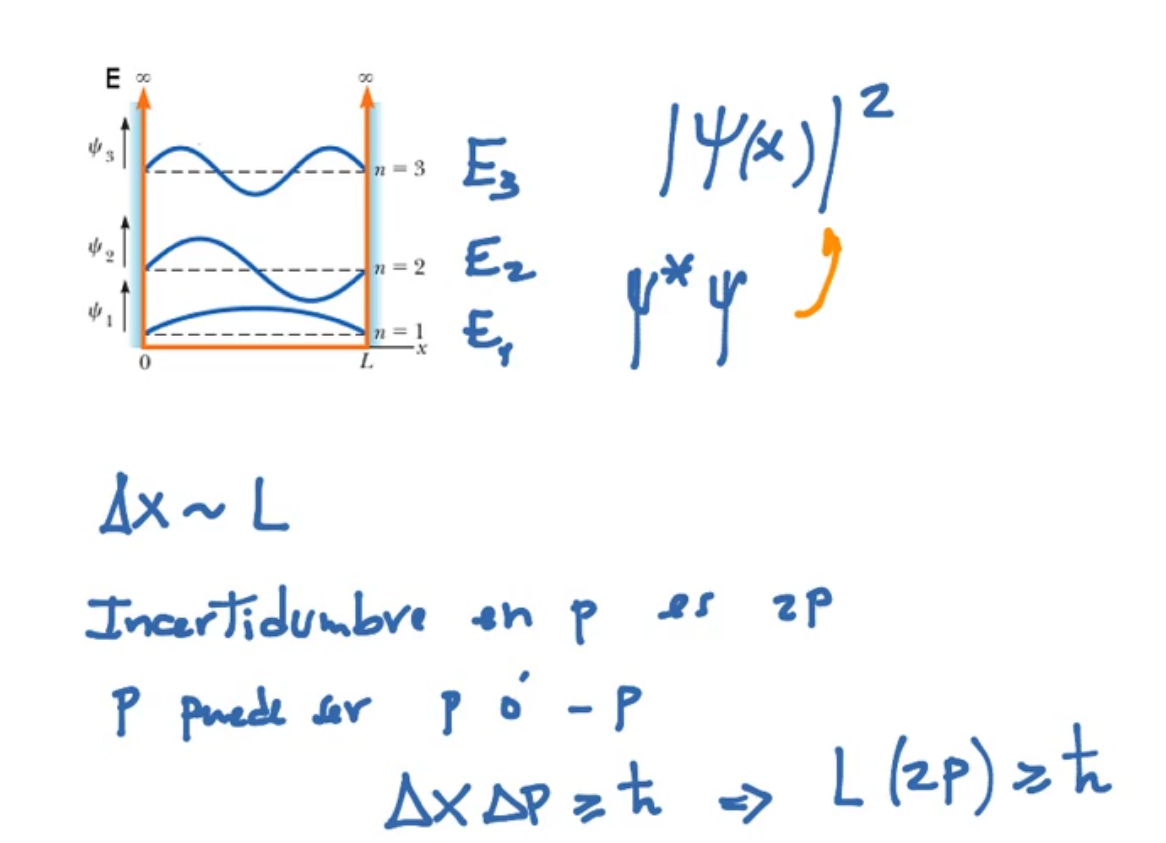 E ∞ ∞
ψ₃ n = 3 E₃
|Ψ(x)|²
ψ₂ n = 2 E₂
Ψ*Ψ
ψ₁ n = 1 E₁
0 L x
Δx ~ L
Incertidumbre en p es 2p
P puede ser p ó -p
Δx Δp ≥ ħ ⇒ L (2p) ≥ ħ